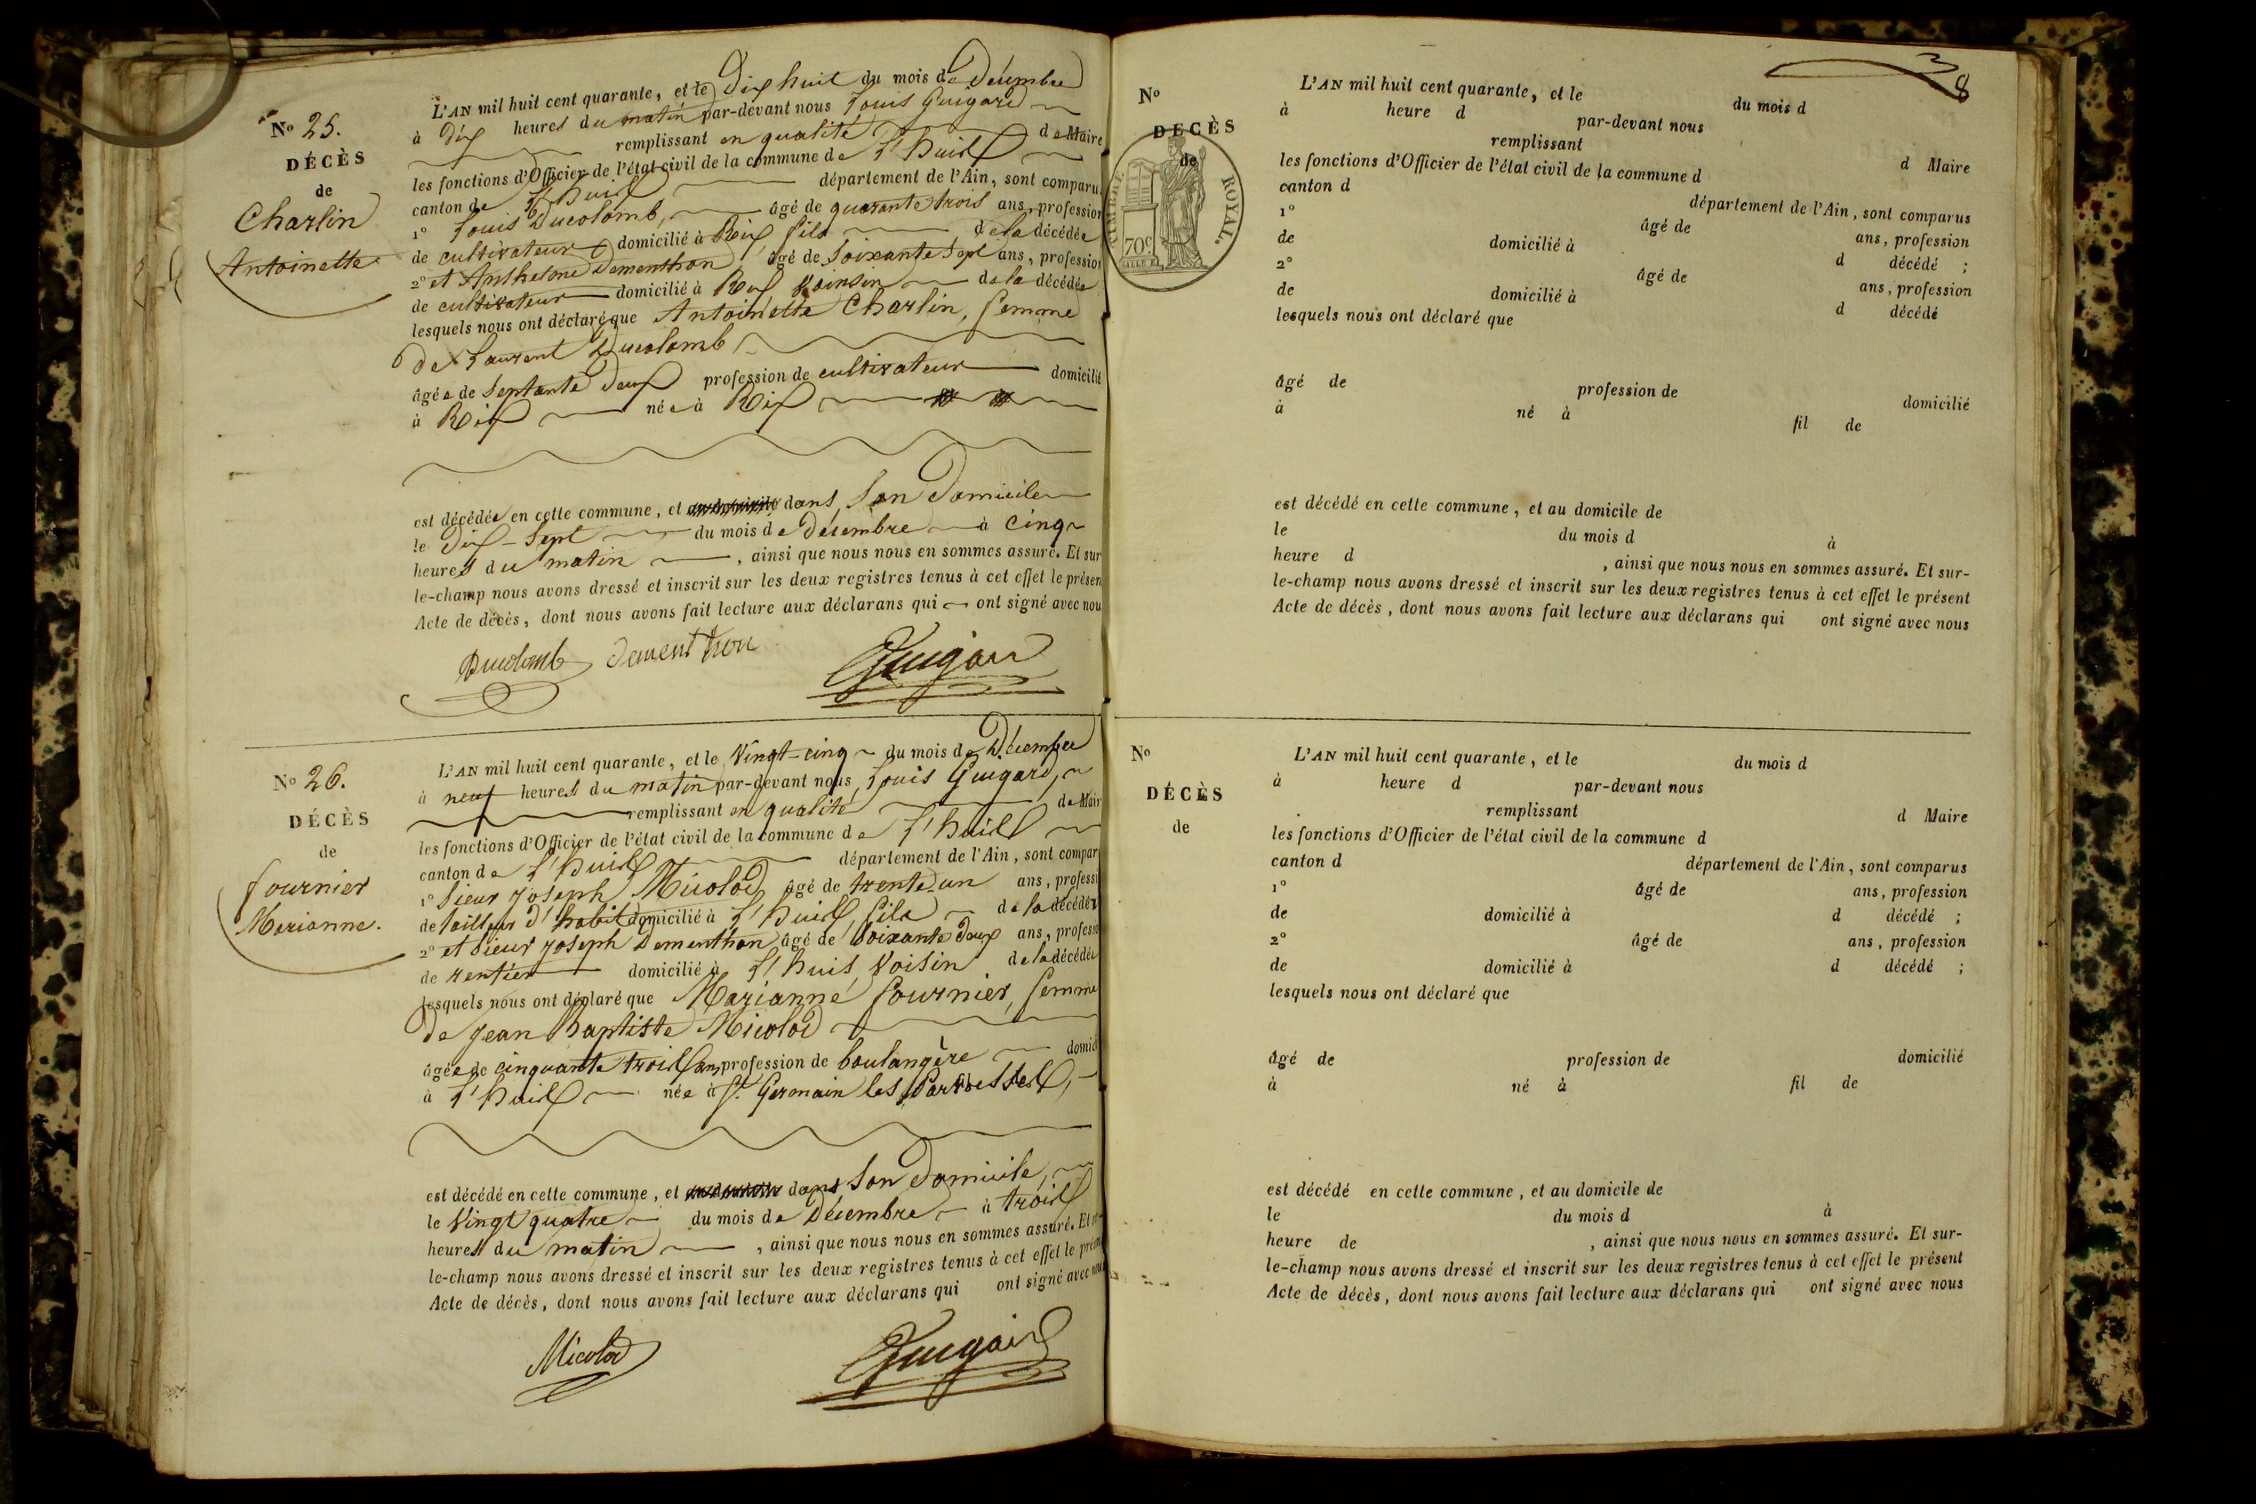 N° 25.
DÉCÈS
de
Charlin
Antoinette
L'AN mil huit cent quarante, et le Dix huit du mois de Décembre
à dix heures du matin par-devant nous Louis Guigard
remplissant en qualité de Maire
les fonctions d'Officier de l'état civil de la commune de L'huis
canton de L'huis département de l'Ain, sont comparu
1° Louis Ducolomb, âgé de quarante trois ans, profession
de cultivateur domicilié à Rix, fils de la décédée
2° et Anthelme Dementhon âgé de Soixante Sept ans, profession
de cultivateur domicilié à Rix Voinsin de la décédée
lesquels nous ont déclaré que Antoinette Charlin, femme
de Laurent Ducolomb
âgée de Septante Deux profession de cultivateur domicilié
à Rix née à Rix
est décédée en cette commune, et dans Son Domicile
le Dix-Sept du mois de Décembre à cinq
heures du matin, ainsi que nous nous en sommes assuré. Et sur
le-champ nous avons dressé et inscrit sur les deux registres tenus à cet effet le présen
Acte de décès, dont nous avons fait lecture aux déclarans qui ont signé avec nou
Ducolomb Dementhon Guigard
N° 26.
DÉCÈS
de
fournier
Marianne.
L'AN mil huit cent quarante, et le Vingt-cinq du mois de Décembre
à neuf heures du matin par-devant nous, Louis Guigard,
remplissant en qualité de Mair
les fonctions d'Officier de l'état civil de la commune de L'huis
canton de L'huis département de l'Ain, sont compar
1° Sieur Joseph Micolod âgé de trente-un ans, professi
de tailleur d'habit domicilié à L'huis, fils de la décédée
2° et Sieur Joseph Dementhon âgé de Soixante Deux ans, professi
de rentier domicilié à L'huis, Voisin de la décédée
lesquels nous ont déclaré que Marianne fournier, femme
de Jean Baptiste Micolod
âgée de cinquante trois ans, profession de boulangère domici
à L'huis née à St. Germain les Paroisses,
est décédé en cette commune, et dans Son Domicile,
le Vingt quatre du mois de Décembre à trois
heures du matin, ainsi que nous nous en sommes assuré. Et sur
le-champ nous avons dressé et inscrit sur les deux registres tenus à cet effet le présen
Acte de décès, dont nous avons fait lecture aux déclarans qui ont signé avec nou
Micolod Guigard
8
N°
DECÈS
de
TIMBRE ROYAL.
70c
L'AN mil huit cent quarante, et le du mois d
à heure d par-devant nous
remplissant d Maire
les fonctions d'Officier de l'état civil de la commune d
canton d département de l'Ain, sont comparus
1° âgé de ans, profession
de domicilié à d décédé ;
2° âgé de ans, profession
de domicilié à d décédé
lesquels nous ont déclaré que
âgé de profession de domicilié
à né à fil de
est décédé en cette commune, et au domicile de
le du mois d à
heure d, ainsi que nous nous en sommes assuré. Et sur-
le-champ nous avons dressé et inscrit sur les deux registres tenus à cet effet le présent
Acte de décès, dont nous avons fait lecture aux déclarans qui ont signé avec nous
N°
DÉCÈS
de
L'AN mil huit cent quarante, et le du mois d
à heure d par-devant nous
remplissant d Maire
les fonctions d'Officier de l'état civil de la commune d
canton d département de l'Ain, sont comparus
1° âgé de ans, profession
de domicilié à d décédé ;
2° âgé de ans, profession
de domicilié à d décédé ;
lesquels nous ont déclaré que
âgé de profession de domicilié
à né à fil de
est décédé en cette commune, et au domicile de
le du mois d à
heure de, ainsi que nous nous en sommes assuré. Et sur-
le-champ nous avons dressé et inscrit sur les deux registres tenus à cet effet le présent
Acte de décès, dont nous avons fait lecture aux déclarans qui ont signé avec nous